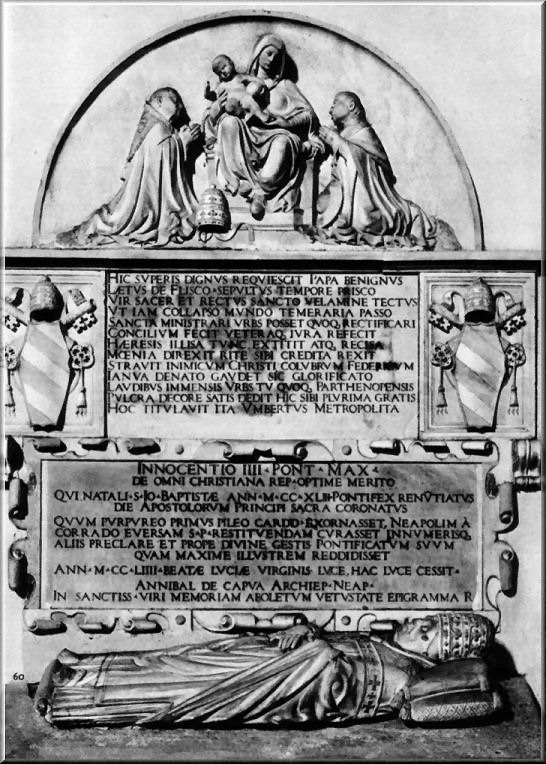 HIC SVPERIS DIGNVS REQVIESCIT PAPA BENIGNVS
LÆTVS DE FLISCO SEPVLTVS TEMPORE PRISCO
VIR SACER ET RECTVS SANCTO VELAMINE TECTVS
VT IAM COLLAPSO MVNDO TEMERARIA PASSO
SANCTA MINISTRARI VRBS POSSET QVOQ RECTIFICARI
CONCILIVM FECIT VETERAQ IVRA REFECIT
HÆRESIS ILLISA TVNC EXTITIT ATQ RECISA
MŒNIA DIREXIT RITE SIBI CREDITA REXIT
STRAVIT INIMICVM CHRISTI COLVBRVM FEDERICVM
IANVA DENATO GAVDET SIC GLORIFICATO
LAVDIBVS IMMENSIS VRBS TV QVOQ PARTHENOPENSIS
PVLCRA DECORE SATIS DEDIT HIC SIBI PLVRIMA GRATIS
HOC TITVLAVIT ITA VMBERTVS METROPOLITA
INNOCENTIO IIII·PONT·MAX·
DE OMNI CHRISTIANA REP·OPTIME MERITO
QVI NATALI·S·IO·BAPTISTÆ ANN·M·CC·XLIII·PONTIFEX RENVTIATVS
DIE APOSTOLORVM PRINCIPI SACRA CORONATVS
QVVM PVRPVREO PRIMVS PILEO CARDD·EXORNASSET, NEAPOLIM À
CORRADO EVERSAM S·P·RESTITVENDAM CVRASSET INNVMERISQ
ALIIS PRECLARE ET PROPE DIVINE GESTIS PONTIFICATVM SVVM
QVAM MAXIME ILLVSTREM REDDIDISSET
ANN·M·CC·LIIII·BEATÆ LVCIÆ VIRGINIS LVCE, HAC LVCE CESSIT·
ANNIBAL DE CAPVA ARCHIEP·NEAP·
IN SANCTISS·VIRI MEMORIAM ABOLETVM VETVSTATE EPIGRAMMA R
60